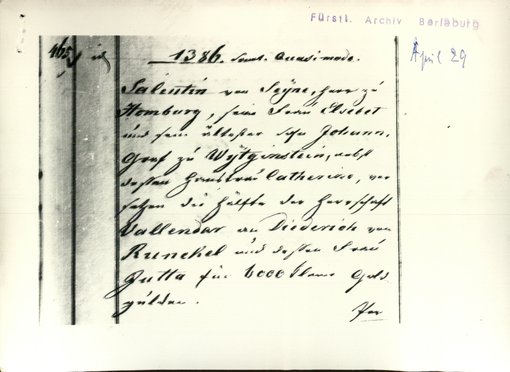 Fürstl. Archiv Berleburg
April 29
465
1386. Sonnt. Quasimodo.
Salentin von Seyne, Herr zu
Homburg, seine Frau Elsebet
und sein ältester Sohn Johann,
Graf zu Wytginstein, nebst
dessen Hausfrau Catherine, ver
setzen die Hälfte der Herrschaft
Vallendar an Diederich von
Runckel und dessen Frau
Jutta für 6000 Gold
gülden.